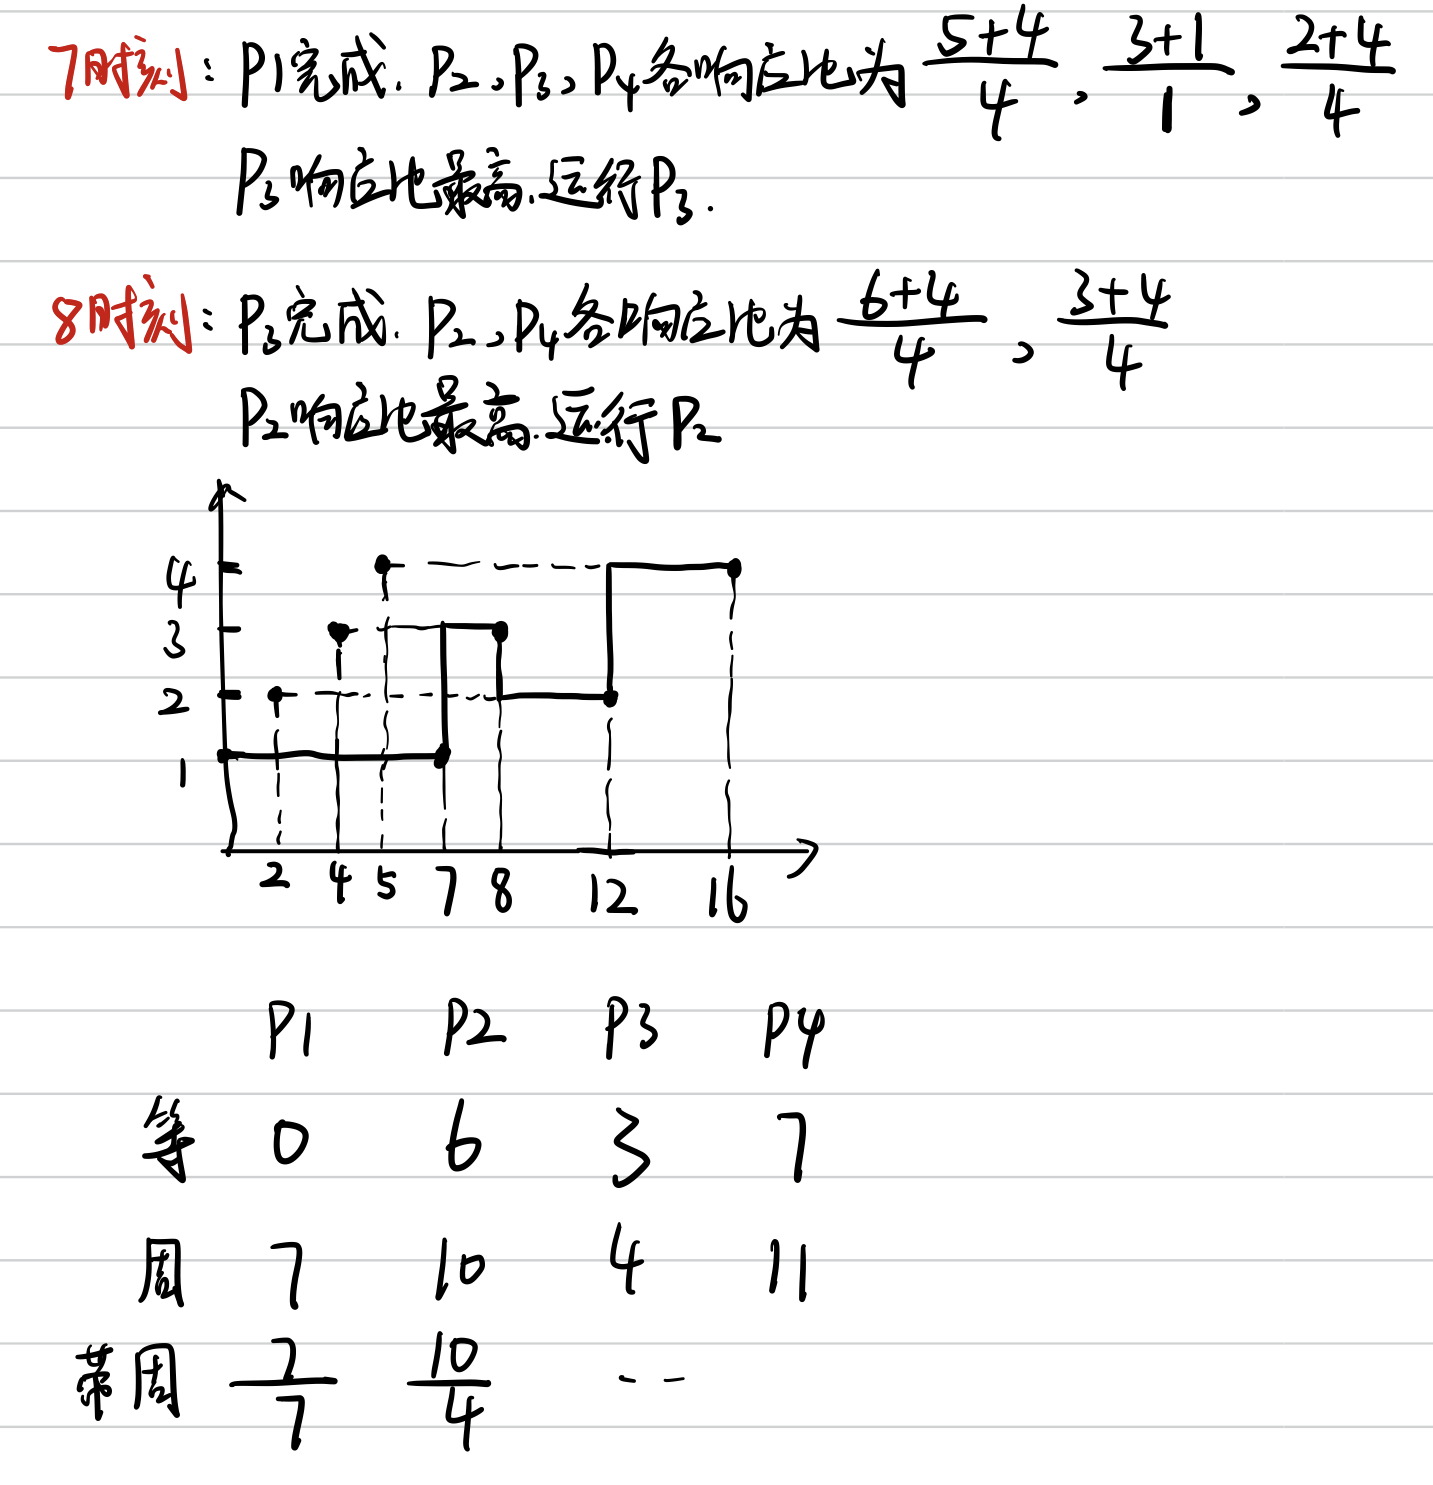 7时刻: P1完成. P2、P3、P4各响应比为 (5+4)/4, (3+1)/1, (2+4)/4
P3响应比最高.运行P3.
8时刻: P3完成. P2、P4各响应比为 (6+4)/4, (3+4)/4
P2响应比最高.运行P2
4
3
2
1
2 4 5 7 8 12 16
P1 P2 P3 P4
等 0 6 3 7
周 7 10 4 11
带周 7/7 10/4 ---